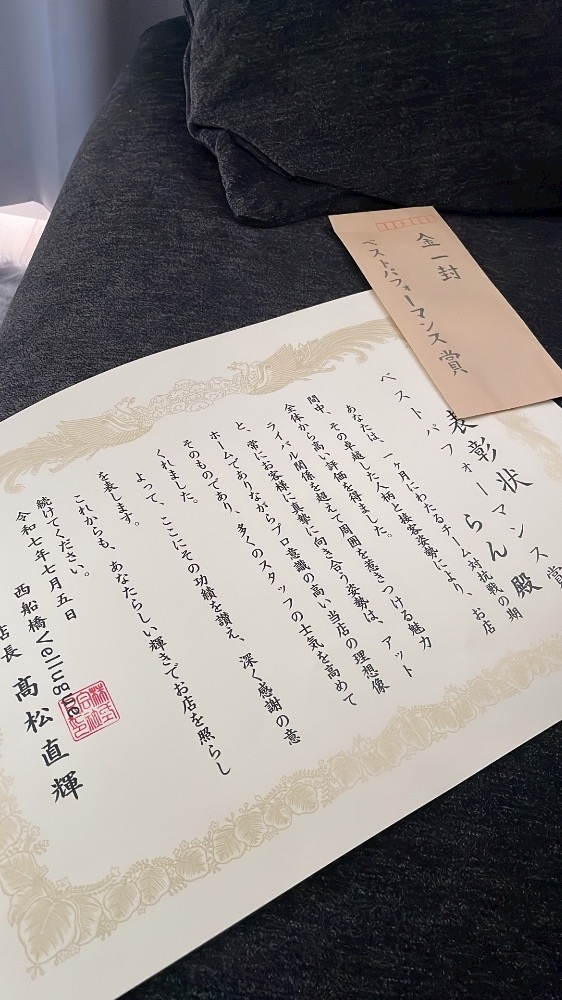 金一封
ベストパフォーマンス賞
表彰状
ベストパフォーマンス賞
らん殿
あなたは、一ヶ月にわたるチーム対抗戦の期
間中、その卓越した人柄と接客姿勢により、お店
全体から高い評価を得ました。
ライバル関係を超えて周囲を惹きつける魅力
と、常にお客様に真摯に向き合う姿勢は、アット
ホームでありながらプロ意識の高い当店の理想像
そのものであり、多くのスタッフの士気を高めて
くれました。
よって、ここにその功績を讃え、深く感謝の意
を表します。
これからも、あなたらしい輝きでお店を照らし
続けてください。
令和七年七月五日
西船橋Vellugue
店長 髙松直輝